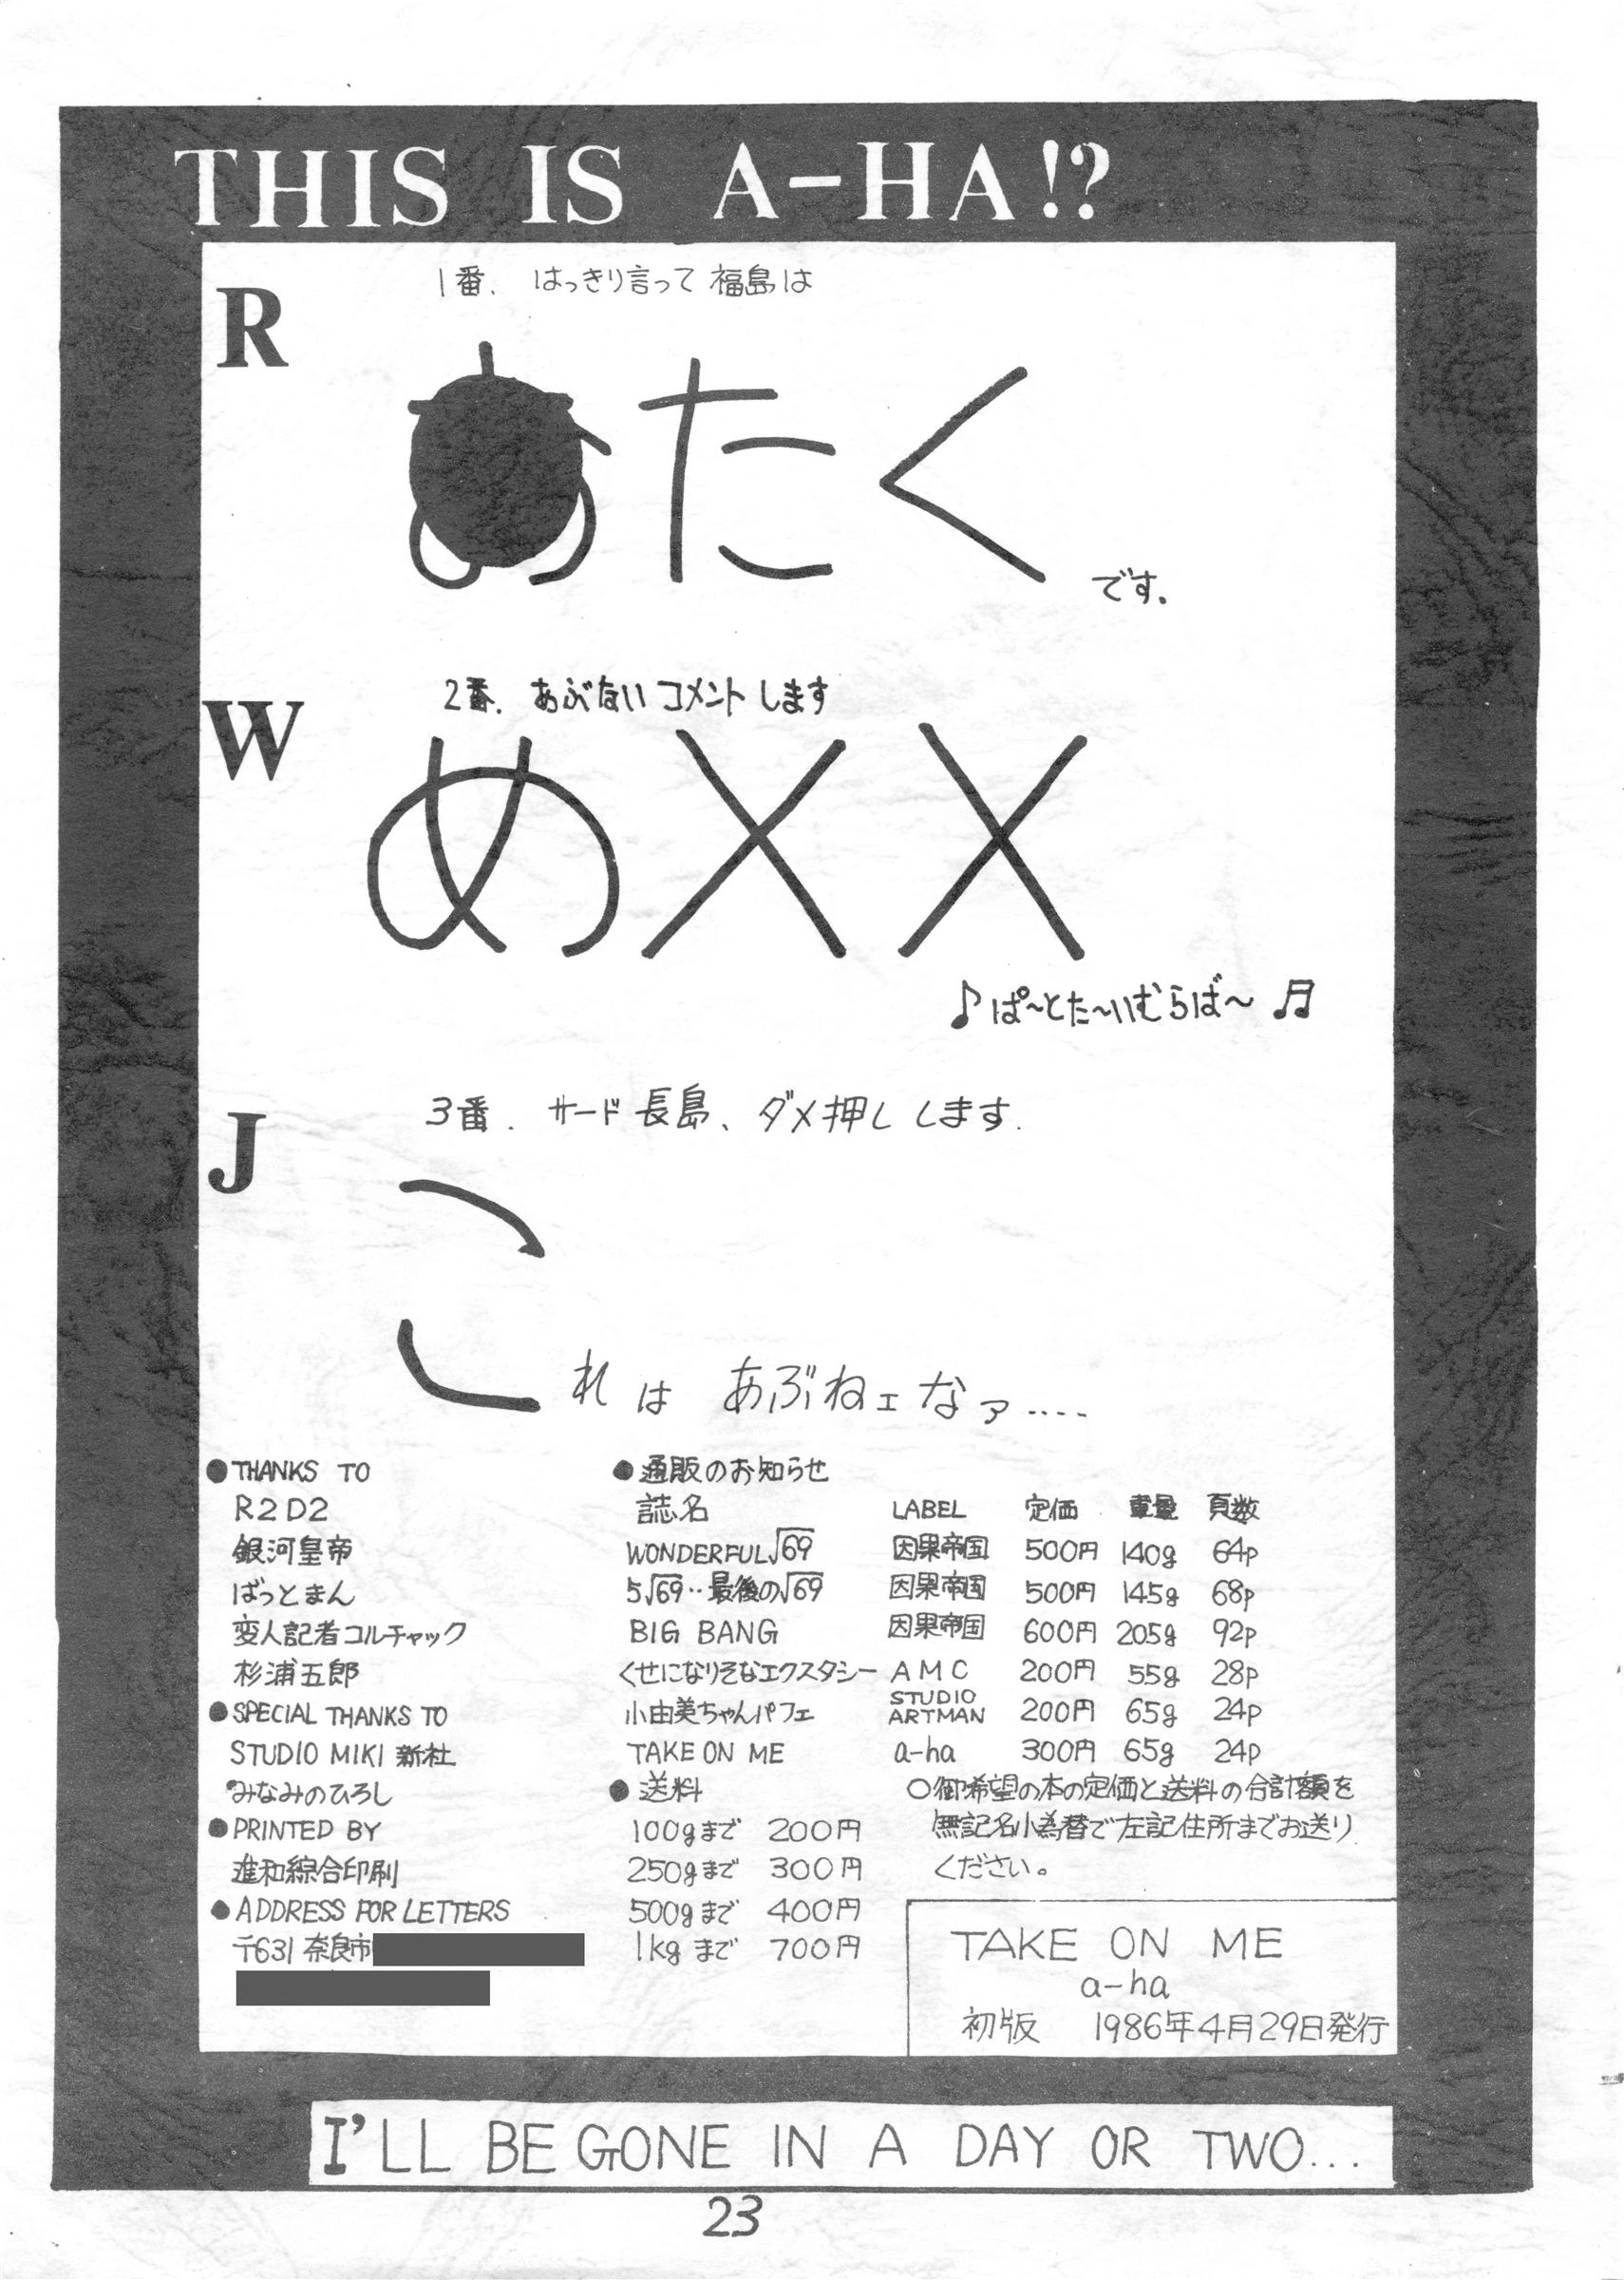 THIS IS A-HA!?
R
1番. はっきり言って 福島は
たく
です.
W
2番. あぶない コメント します
め××
♪ ぱ〜とた〜いむらば〜 ♬
J
3番. サード 長島、ダメ押し します.
これは あぶねェなァ....
●THANKS TO
R2D2
銀河皇帝
ばっとまん
変人記者コルチャック
杉浦五郎
●SPECIAL THANKS TO
STUDIO MIKI 新社
みなみのひろし
●PRINTED BY
進和綜合印刷
●ADDRESS FOR LETTERS
〒631 奈良市
●通販のお知らせ
誌名 LABEL 定価 重量 頁数
WONDERFUL√69 因果帝国 500円 140g 64p
5√69‥最後の√69 因果帝国 500円 145g 68p
BIG BANG 因果帝国 600円 205g 92p
くせになりそなエクスタシー AMC 200円 55g 28p
小由美ちゃんパフェ STUDIO ARTMAN 200円 65g 24p
TAKE ON ME a-ha 300円 65g 24p
●送料
100gまで 200円
250gまで 300円
500gまで 400円
1kgまで 700円
○御希望の本の定価と送料の合計額を
無記名小為替で左記住所までお送り
ください。
TAKE ON ME
a-ha
初版 1986年4月29日発行
I'LL BE GONE IN A DAY OR TWO...
23